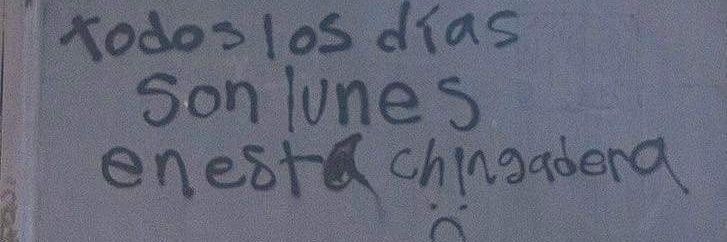 todos los días
son lunes
en esta chingadera
:(